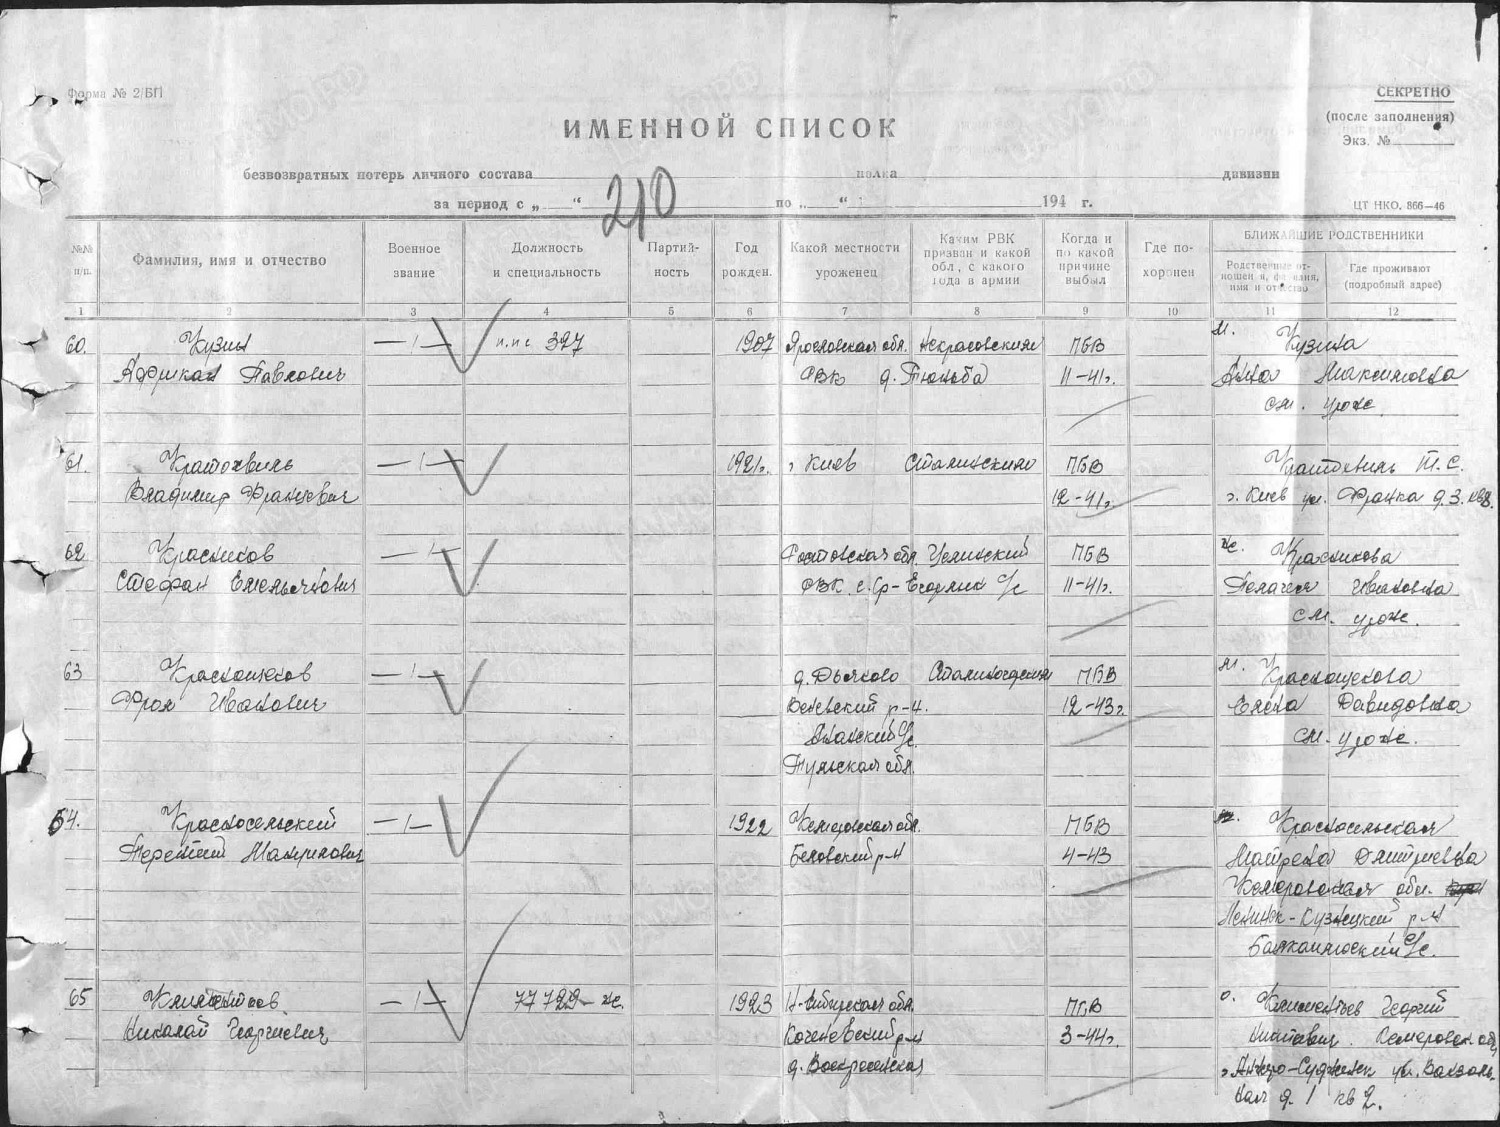 Форма № 2/БП
СЕКРЕТНО
(после заполнения)
Экз. №
ИМЕННОЙ СПИСОК
безвозвратных потерь личного состава полка дивизии
за период с „ “ 210 по „ “ 194 г.
ЦТ НКО. 866—46
№№ п/п.
Фамилия, имя и отчество
Военное звание
Должность и специальность
Партийность
Год рожден.
Какой местности уроженец
Каким РВК призван и какой обл., с какого года в армии
Когда и по какой причине выбыл
Где похоронен
БЛИЖАЙШИЕ РОДСТВЕННИКИ
Родственные отношения, фамилия, имя и отчество
Где проживают (подробный адрес)
1 2 3 4 5 6 7 8 9 10 11 12
60. Кузин —1— п.пс 327 1907 Ярославская обл. Некрасовским ПБВ м. Кузина
Африкан Павлович РВК д. 11-41г. Анна Максимовна
см. урож.
61. Кратохвиль —1— 1921г. г Киев Сталинским ПБВ Кратохвиль Т.С.
Владимир Францевич 12-41г. г. Киев ул. Франка д.3. кв8.
62 Красников —1— Ростовская обл. Целинский ПБВ ж. Красникова
Стефан Емельянович РВК с. Ср-Егорлик С/с 11-41г. Пелагея Ивановна
см. урож.
63 Краснощеков —1— д. Дьяково Сталиногорским ПБВ м. Краснощекова
Фрол Иванович Веневский р-н. 12-43г. Елена Давидовна
С/с. см. урож.
Тульская обл.
64. Красносельский —1— 1922 Кемеровская обл. ПБВ Красносельская
Терентий Беловский р-н 4-43 Матрена Дмитриевна
Кемеровская обл.
Ленинск-Кузнецкий р-н
С/с.
65 Климентьев —1— 77729-ж 1923 Н-Сибирская обл. ПБВ о. Климентьев Георгий
Николай Георгиевич Коченевский р-н 3-44г. Кемеровск обл
д. Воскресенская г. Анжеро-Судженск ул. Вокзаль-
ная д. 1 кв 2.